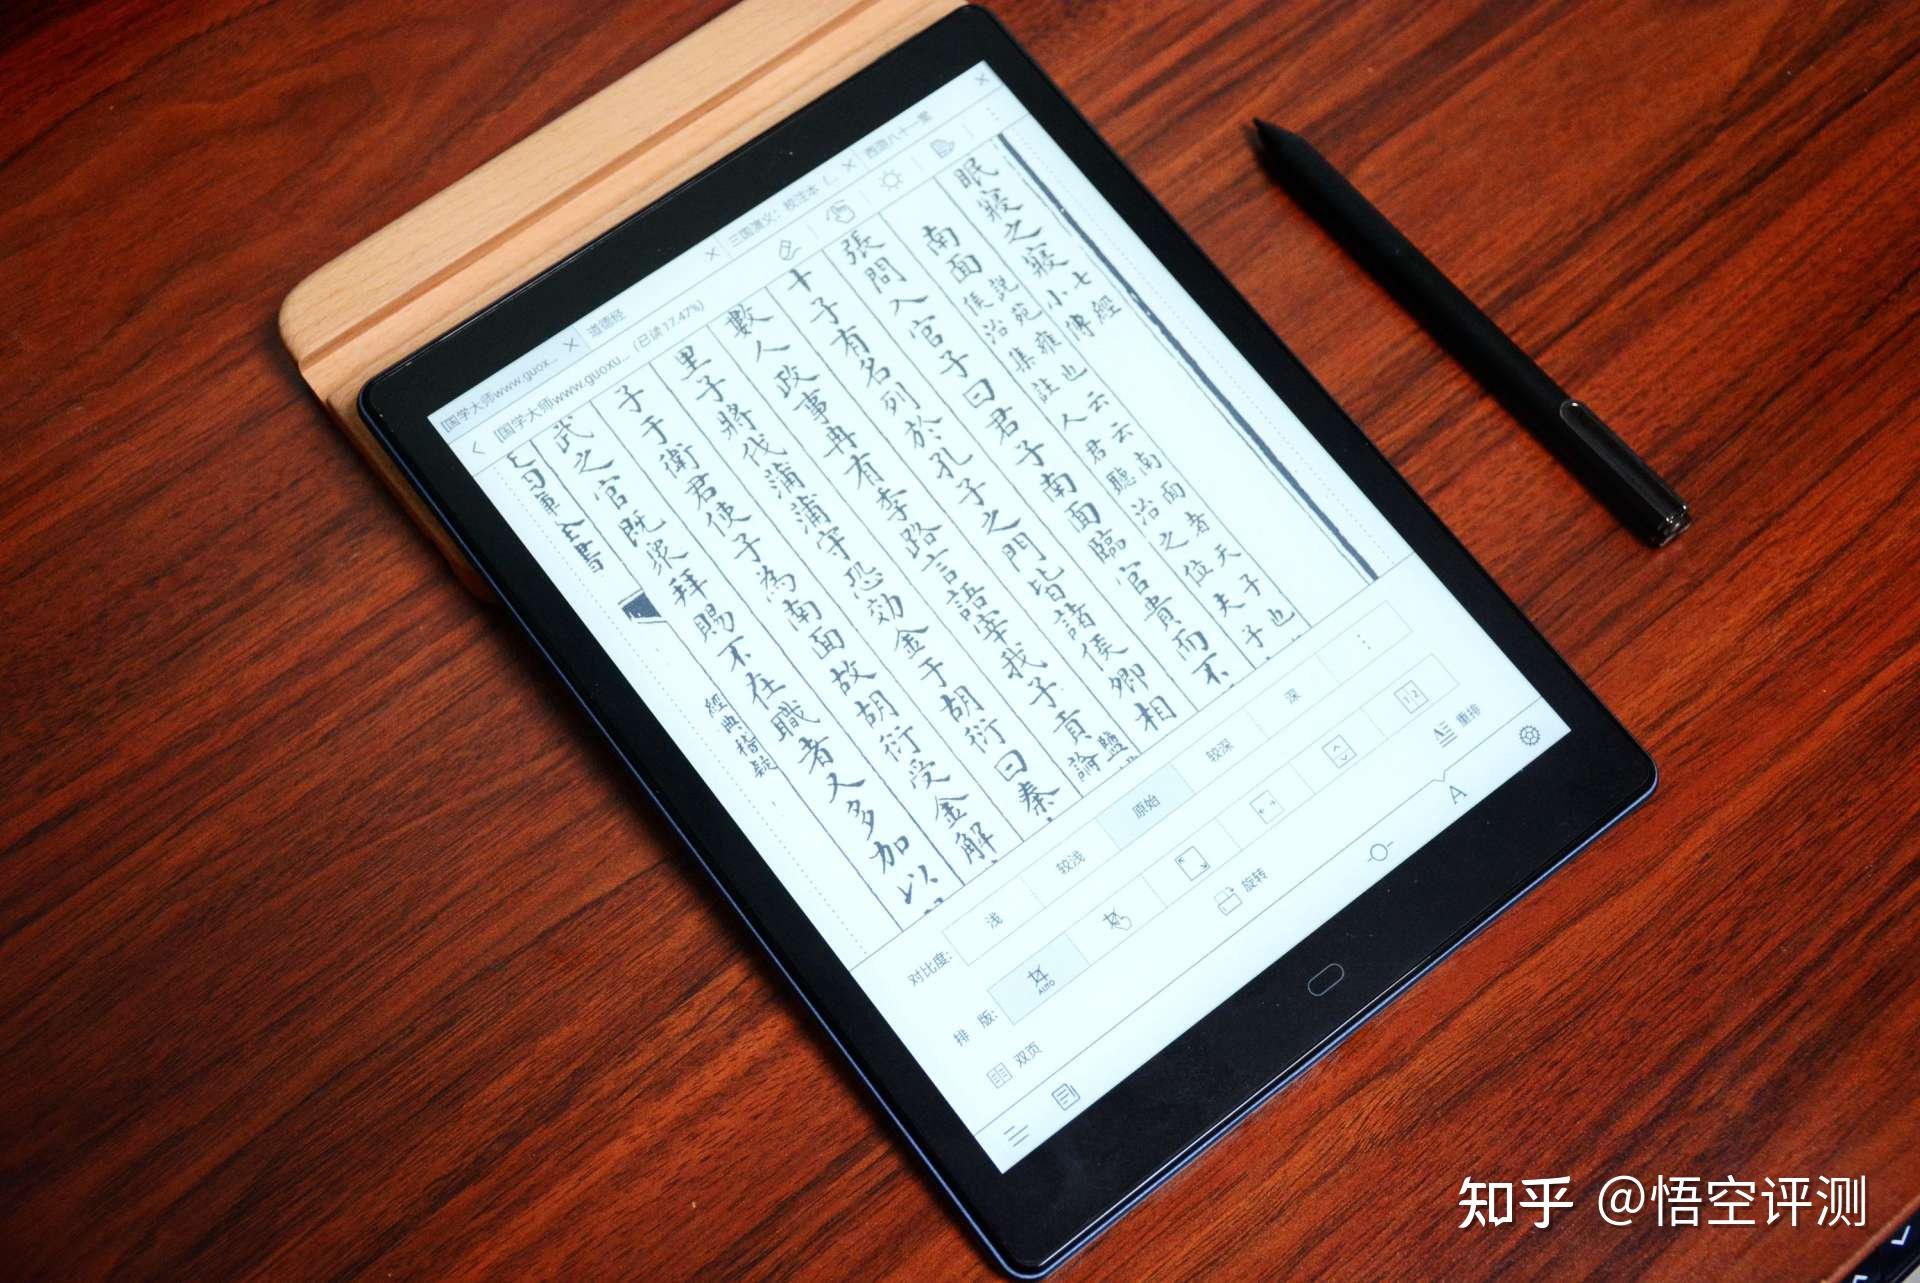 [国学大师www.guox...
道德经
三国演义：校注本 (...
西游八十一案
[国学大师www.guoxu... (已读 17.47%)
眠寢之寢七經小傳
南面說苑雍也云云南面者天子也
侯治集註人君聽治之位夫子
張問入官子曰君子南面臨官貴而不
十子有名列於孔子之門皆諸侯卿相
數人政事冉有季路言語宰我子貢鹽論
里子將代蒲蒲守恐効金于胡衍曰秦
子于衛君使子為南面故胡衍受金解
武之官既眾拜賜不在職者又多加以
全書
經典稽疑
对比度: 浅 较浅 原始 较深 深
排 版: AUTO 1:2
双页 旋转 重排
A
知乎 @悟空评测